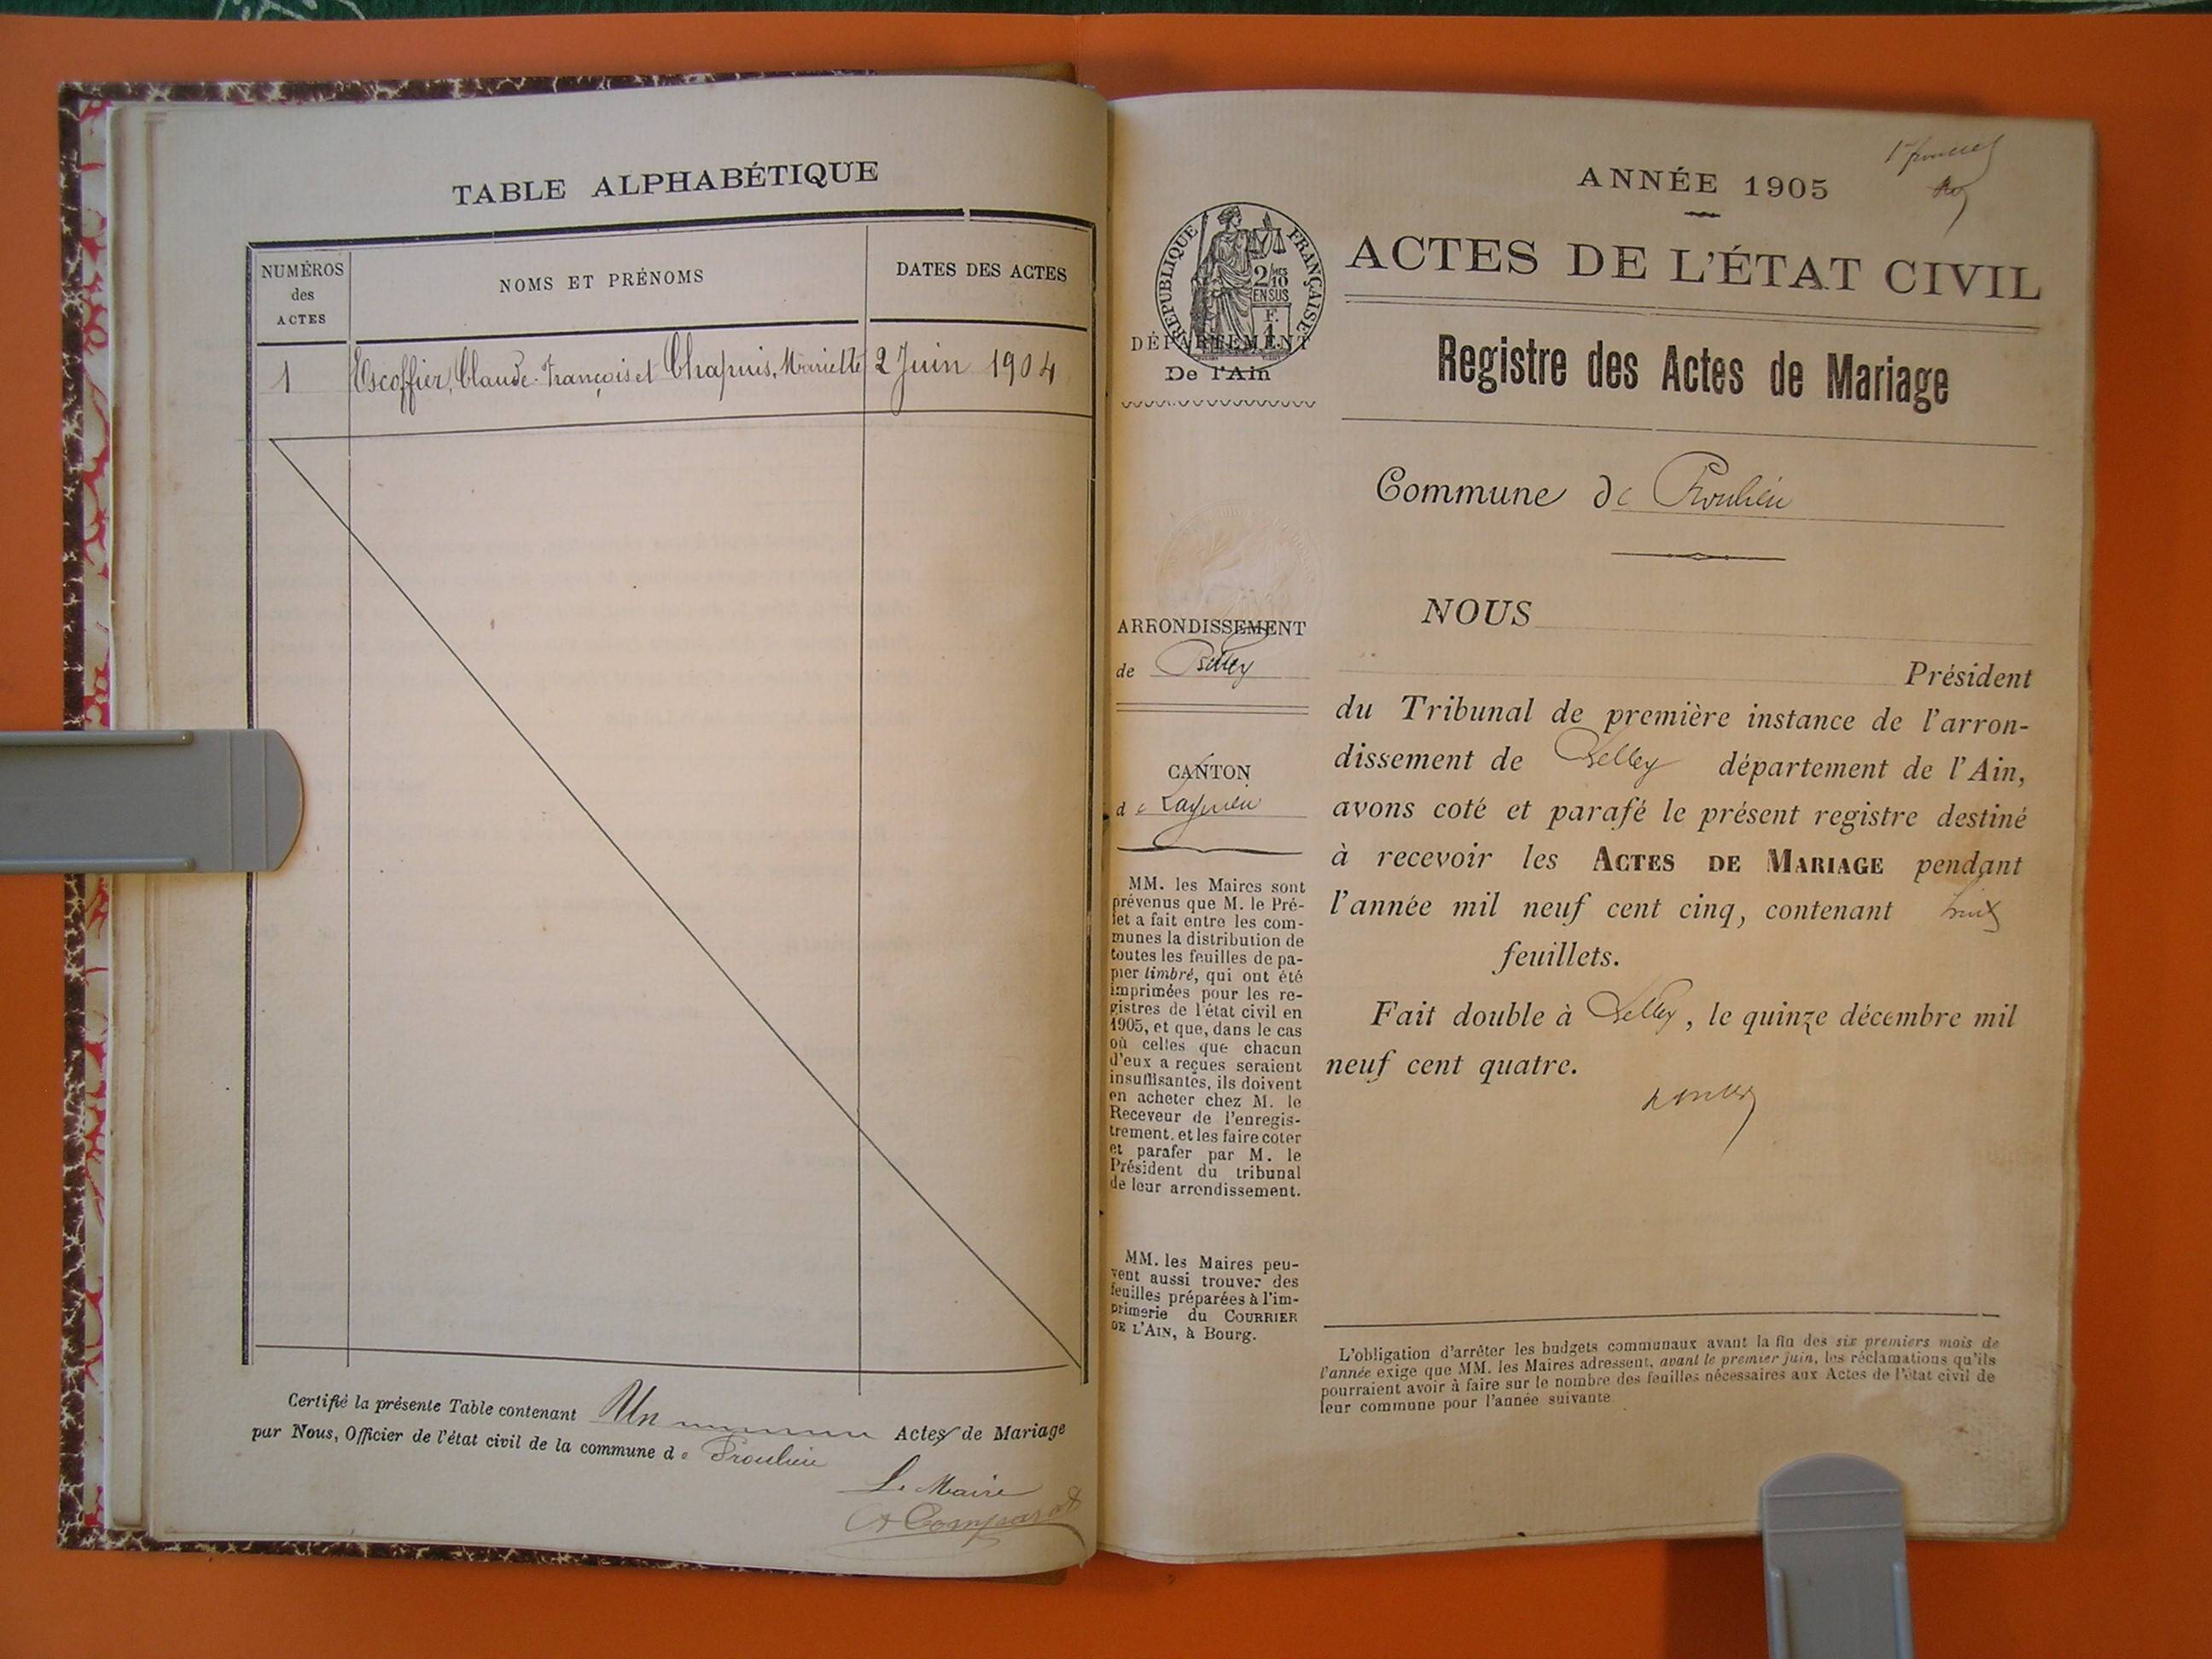 TABLE ALPHABÉTIQUE
NUMÉROS
des
ACTES
NOMS ET PRÉNOMS
DATES DES ACTES
1
Escoffier, Claude-François et Chapuis, Mariette
2 Juin 1904
Certifié la présente Table contenant Un Actes de Mariage
par Nous, Officier de l'état civil de la commune de Proulieu
Le Maire
Comparat
1er
ANNÉE 1905
ACTES DE L'ÉTAT CIVIL
Registre des Actes de Mariage
RÉPUBLIQUE FRANÇAISE
2/10 MES
EN SUS
F.
1
DÉPARTEMENT
De l'Ain
Commune de Proulieu
ARRONDISSEMENT
de Belley
CANTON
de Lagnieu
MM. les Maires sont
prévenus que M. le Pré-
fet a fait entre les com-
munes la distribution de
toutes les feuilles de pa-
pier timbré, qui ont été
imprimées pour les re-
gistres de l'état civil en
1905, et que, dans le cas
où celles que chacun
d'eux a reçues seraient
insuffisantes, ils doivent
en acheter chez M. le
Receveur de l'enregis-
trement, et les faire coter
et parafer par M. le
Président du tribunal
de leur arrondissement.
MM. les Maires peu-
vent aussi trouver des
feuilles préparées à l'im-
primerie du COURRIER
DE L'AIN, à Bourg.
NOUS
Président
du Tribunal de première instance de l'arron-
dissement de Belley département de l'Ain,
avons coté et parafé le présent registre destiné
à recevoir les ACTES DE MARIAGE pendant
l'année mil neuf cent cinq, contenant huit
feuillets.
Fait double à Belley, le quinze décembre mil
neuf cent quatre.
L'obligation d'arrêter les budgets communaux avant la fin des six premiers mois de
l'année exige que MM. les Maires adressent, avant le premier juin, les réclamations qu'ils
pourraient avoir à faire sur le nombre des feuilles nécessaires aux Actes de l'état civil de
leur commune pour l'année suivante